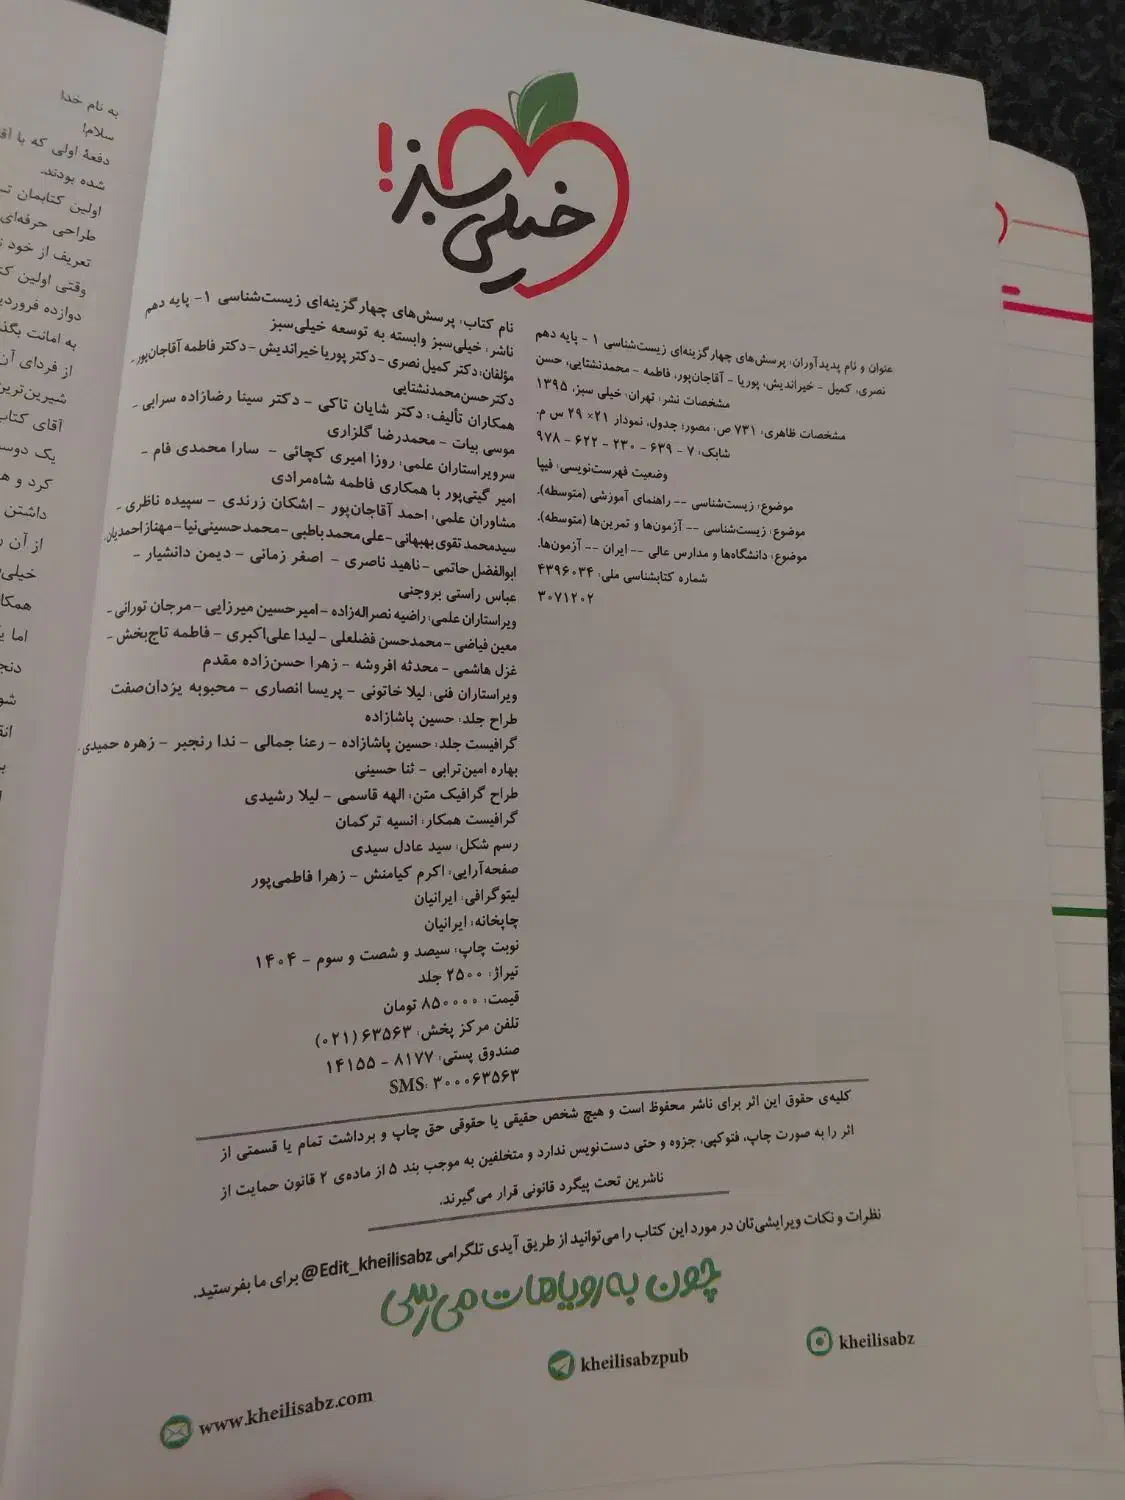 خیلی سبز!
عنوان و نام پدیدآوران: پرسش‌های چهارگزینه‌ای زیست‌شناسی ۱ - پایه دهم
نصری، کمیل - خیراندیش، پوریا - آقاجان‌پور، فاطمه - محمدنشتایی، حسن
مشخصات نشر: تهران: خیلی سبز، ۱۳۹۵
مشخصات ظاهری: ۷۳۱ ص، مصور؛ جدول، نمودار ۲۱×۲۹ س م.
شابک: ۷ - ۶۳۹ - ۲۳۰ - ۶۲۲ - ۹۷۸
وضعیت فهرست‌نویسی: فیپا
موضوع: زیست‌شناسی -- راهنمای آموزشی (متوسطه).
موضوع: زیست‌شناسی -- آزمون‌ها و تمرین‌ها (متوسطه).
موضوع: دانشگاه‌ها و مدارس عالی -- ایران -- آزمون‌ها.
شماره کتابشناسی ملی: ۴۳۹۶۰۳۴
۳۰۷۱۲۰۲
نام کتاب: پرسش‌های چهارگزینه‌ای زیست‌شناسی ۱- پایه دهم
ناشر: خیلی‌سبز وابسته به توسعه خیلی‌سبز
مؤلفان: دکتر کمیل نصری - دکتر پوریا خیراندیش - دکتر فاطمه آقاجان‌پور -
دکتر حسن محمدنشتایی
همکاران تألیف: دکتر شایان تاکی - دکتر سینا رضازاده سرابی -
موسی بیات - محمدرضا گلزاری
سرویراستاران علمی: روزا امیری کچائی - سارا محمدی فام -
امیر گیتی‌پور با همکاری فاطمه شاه‌مرادی
مشاوران علمی: احمد آقاجان‌پور - اشکان زرندی - سپیده ناظری -
سیدمحمد تقوی بهبهانی - علی محمد باطبی - محمد حسینی‌نیا - مهناز احمدیان
ابوالفضل حاتمی - ناهید ناصری - اصغر زمانی - دیمن دانشیار -
عباس راستی بروجنی
ویراستاران علمی: راضیه نصراله‌زاده - امیرحسین میرزایی - مرجان تورانی -
معین فیاضی - محمدحسن فضلعلی - لیدا علی‌اکبری - فاطمه تاج‌بخش -
غزل هاشمی - محدثه افروشه - زهرا حسن‌زاده مقدم
ویراستاران فنی: لیلا خاتونی - پریسا انصاری - محبوبه یزدان‌صفت
طراح جلد: حسین پاشازاده
گرافیست جلد: حسین پاشازاده - رعنا جمالی - ندا رنجبر - زهره حمیدی
بهاره امین‌ترابی - ثنا حسینی
طراح گرافیک متن: الهه قاسمی - لیلا رشیدی
گرافیست همکار: انسیه ترکمان
رسم شکل: سید عادل سیدی
صفحه‌آرایی: اکرم کیامنش - زهرا فاطمی‌پور
لیتوگرافی: ایرانیان
چاپخانه: ایرانیان
نوبت چاپ: سیصد و شصت و سوم - ۱۴۰۴
تیراژ: ۲۵۰۰ جلد
قیمت: ۸۵۰۰۰۰ تومان
تلفن مرکز پخش: ۶۳۵۶۳ (۰۲۱)
صندوق پستی: ۸۱۷۷ - ۱۴۱۵۵
SMS: ۳۰۰۰۶۳۵۶۳
کلیه‌ی حقوق این اثر برای ناشر محفوظ است و هیچ شخص حقیقی یا حقوقی حق چاپ و برداشت تمام یا قسمتی از
اثر را به صورت چاپ، فتوکپی، جزوه و حتی دست‌نویس ندارد و متخلفین به موجب بند ۵ از ماده‌ی ۲ قانون حمایت از
ناشرین تحت پیگرد قانونی قرار می‌گیرند.
نظرات و نکات ویرایشی‌تان در مورد این کتاب را می‌توانید از طریق آیدی تلگرامی @Edit_kheilisabz برای ما بفرستید.
چون به رویاهات می‌رسی
kheilisabz
kheilisabzpub
www.kheilisabz.com
به نام خدا
سلام!
دفعهٔ اولی که با
شده بودند.
اولین کتابمان
طراحی حرفه‌ای
تعریف از خود
وقتی اولین
دوازده
به امانت
از فردای آن
شیرین‌ترین
آقای کتاب
یک
کرد و
داشتن
از آن
خیلی
اما